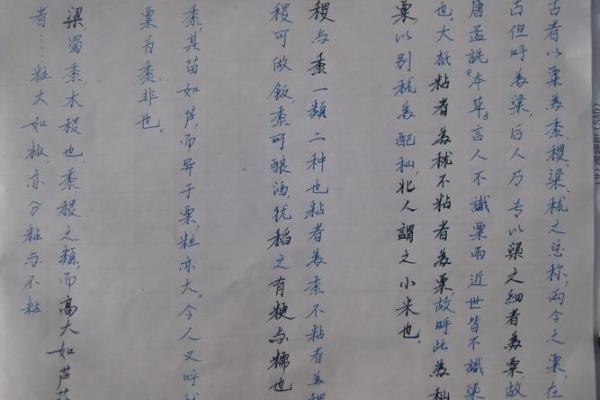 古者以粟為黍、稷、粱、秫之总称，而今之粟，在
古但呼為粱，后人乃专以粱之细者為粟，故
唐孟詵《本草》言人不識粟，而近世皆不識粱
也。大抵粘者為秫，不粘者為粟，故呼此為籼
粟，以别秫為配籼，北人謂之小米也。
稷与黍一類二种也，粘者為黍，不粘者為稷
稷可做飯，黍可酿酒，犹稻之有粳与糯也
黍，其苗如芦，而异于粟，粒亦大。今人又呼
粟为黍，非也。
粱，蜀黍，木稷也，黍稷之類，而高大如芦荻
者……粒大如椒，亦分粘与不粘